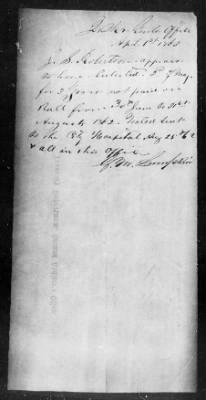 Office
April 1st 1863
J. S. Robertson appears
to have Enlisted 2d of May
for 2 years not paid on
Roll from 30th June to 31st
August 1862. Noted Sent
to the Hospital Aug 28th 62
& all in this Office